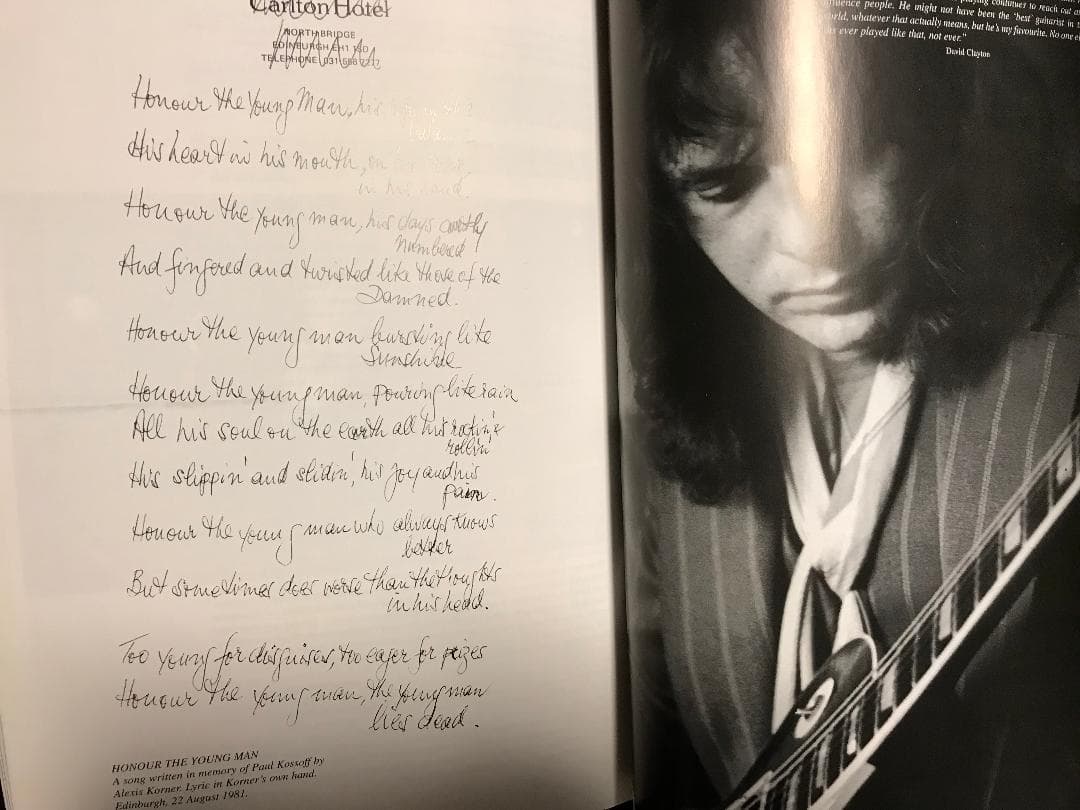 Carlton Hotel
NORTH BRIDGE
EDINBURGH EH1 1SD
TELEPHONE 031
Honour the Young Man, his
His heart in his mouth, on
in his hand.
Honour the young man, his days costly
numbered
And fingered and twisted like those of the
Damned.
Honour the young man bursting like
Sunshine
Honour the young man, Pouring like rain
All his soul on the earth all his rockin' &
rollin'
His slippin' and slidin', his joy and his
pain.
Honour the young man who always knows
better
But sometimes does worse than the thoughts
in his head.
Too young for disguises, too eager for prizes
Honour the young man, the young man
lies dead.
HONOUR THE YOUNG MAN
A song written in memory of Paul Kossoff by
Alexis Korner. Lyric in Korner's own hand.
Edinburgh, 22 August 1981.
playing continues to reach out a
fluence people. He might not have been the 'best' guitarist in t
orld, whatever that actually means, but he's my favourite. No one e
s ever played like that, not ever."
David Clayton